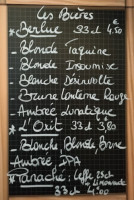 Les Bières
* Berlue 33cl 4.50€
* Blonde Taquine
* Blonde Insoumise
* Blanche Désinvolte
* Brune Lanterne Rouge
* Ambrée Lunatique
* L'Oxit 33cl 3.80
* Blanche Blonde Brune
Ambrée IPA
* Panaché : Leffe 25cl
Limonade
33cl 4.00